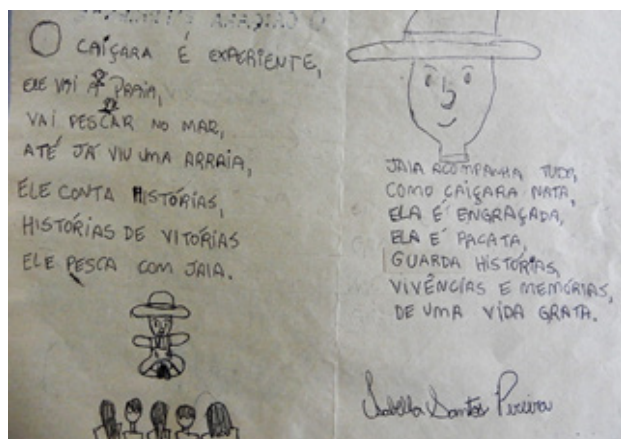 O CAIÇARA É EXPERIENTE,
ELE VAI À PRAIA,
VAI PESCAR NO MAR,
ATÉ JÁ VIU UMA ARRAIA,
ELE CONTA HISTÓRIAS,
HISTÓRIAS DE VITÓRIAS
ELE PESCA COM JAIA.
JAIA ACOMPANHA TUDO,
COMO CAIÇARA NATA,
ELA É ENGRAÇADA,
ELA É PACATA,
GUARDA HISTÓRIAS,
VIVÊNCIAS E MEMÓRIAS,
DE UMA VIDA GRATA.
Isabella Santos Pereira